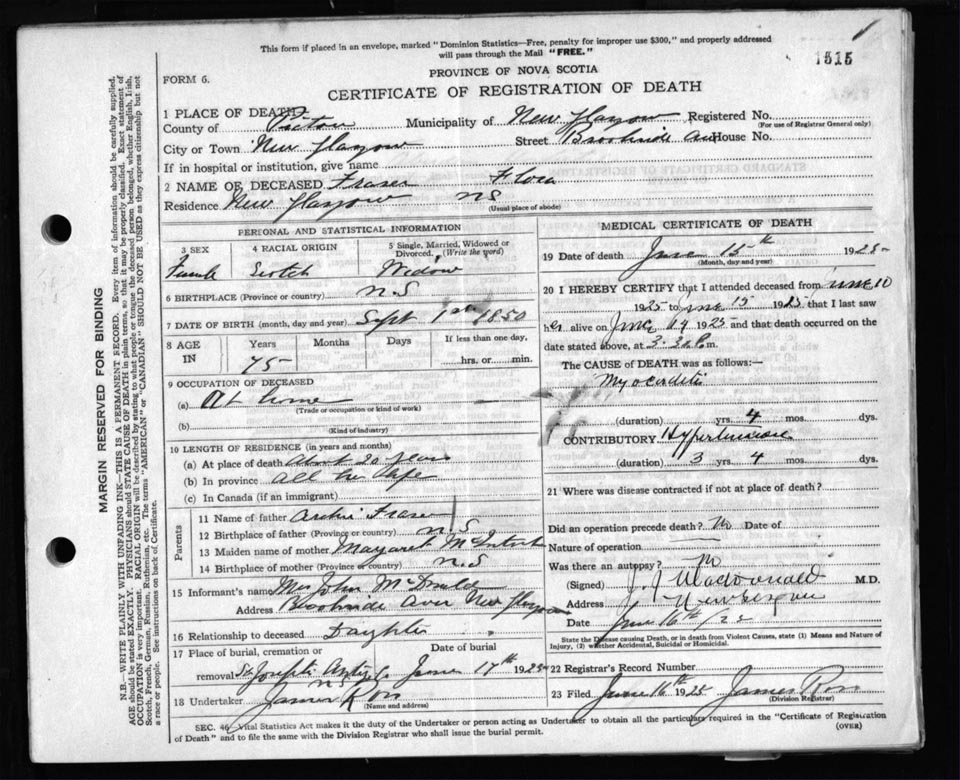 This form if placed in an envelope, marked "Dominion Statistics—Free, penalty for improper use $300," and properly addressed
will pass through the Mail "FREE."
1515
PROVINCE OF NOVA SCOTIA
FORM 6.
CERTIFICATE OF REGISTRATION OF DEATH
1 PLACE OF DEATH
County of Pictou Municipality of New Glasgow Registered No.
(For use of Registrar General only)
City or Town New Glasgow Street Brookside Ave House No.
If in hospital or institution, give name
2 NAME OF DECEASED Fraser Flora
Residence New Glasgow NS
(Usual place of abode)
PERSONAL AND STATISTICAL INFORMATION
3 SEX 4 RACIAL ORIGIN 5 Single, Married, Widowed or Divorced. (Write the word)
Female Scotch Widow
6 BIRTHPLACE (Province or country) N.S
7 DATE OF BIRTH (month, day and year) Sept 1st 1850
8 AGE IN Years Months Days If less than one day,
75 hrs. or min.
9 OCCUPATION OF DECEASED
(a) At home
(Trade or occupation or kind of work)
(b)
(Kind of industry)
10 LENGTH OF RESIDENCE (in years and months)
(a) At place of death about 20 years
(b) In province all her life
(c) In Canada (if an immigrant)
Parents
11 Name of father Archie Fraser
12 Birthplace of father (Province or country) N.S
13 Maiden name of mother Margaret McIntosh
14 Birthplace of mother (Province or country) N.S
15 Informant's name Mrs John McDonald
Address Brookside Aven New Glasgow
16 Relationship to deceased Daughter
17 Place of burial, cremation or Date of burial
removal St Joseph June 17th 1925
18 Undertaker James Ross
(Name and address)
MEDICAL CERTIFICATE OF DEATH
19 Date of death June 15th 1925
(Month, day and year)
20 I HEREBY CERTIFY that I attended deceased from June 10
1925 to June 15 1925 that I last saw
her alive on June 14 1925 and that death occurred on
date stated above, at 3.30 P.m.
The CAUSE of DEATH was as follows:—
Myocarditis
(duration) yrs. 4 mos. dys.
CONTRIBUTORY Hypertension
(duration) 3 yrs. 4 mos. dys.
21 Where was disease contracted if not at place of death?
Did an operation precede death? No Date of
Nature of operation
Was there an autopsy? No
(Signed) J. J. Macdonald M.D.
Address New Glasgow
Date June 16th / 25
State the Disease causing Death, or in death from Violent Causes, state (1) Means and Nature of
Injury, (2) whether Accidental, Suicidal or Homicidal.
22 Registrar's Record Number
23 Filed June 16th 1925 James Ross
(Division Registrar)
SEC. 46 Vital Statistics Act makes it the duty of the Undertaker or person acting as Undertaker to obtain all the particulars required in the "Certificate of Registration
of Death" and to file the same with the Division Registrar who shall issue the burial permit. (OVER)
MARGIN RESERVED FOR BINDING
N.B.—WRITE PLAINLY WITH UNFADING INK—THIS IS A PERMANENT RECORD. Every item of information should be carefully supplied.
AGE should be stated EXACTLY. PHYSICIANS should STATE CAUSE OF DEATH in plain terms, so that it may be properly classified. Exact statement of
OCCUPATION is very important. RACIAL ORIGIN will be described by stating to what people or tongue the deceased person belonged, whether English, Irish,
Scotch, French, German, Russian, Ruthenian, etc. The terms "AMERICAN" or "CANADIAN" SHOULD NOT BE USED as they express citizenship but not
a race or people. See instructions on back of Certificate.